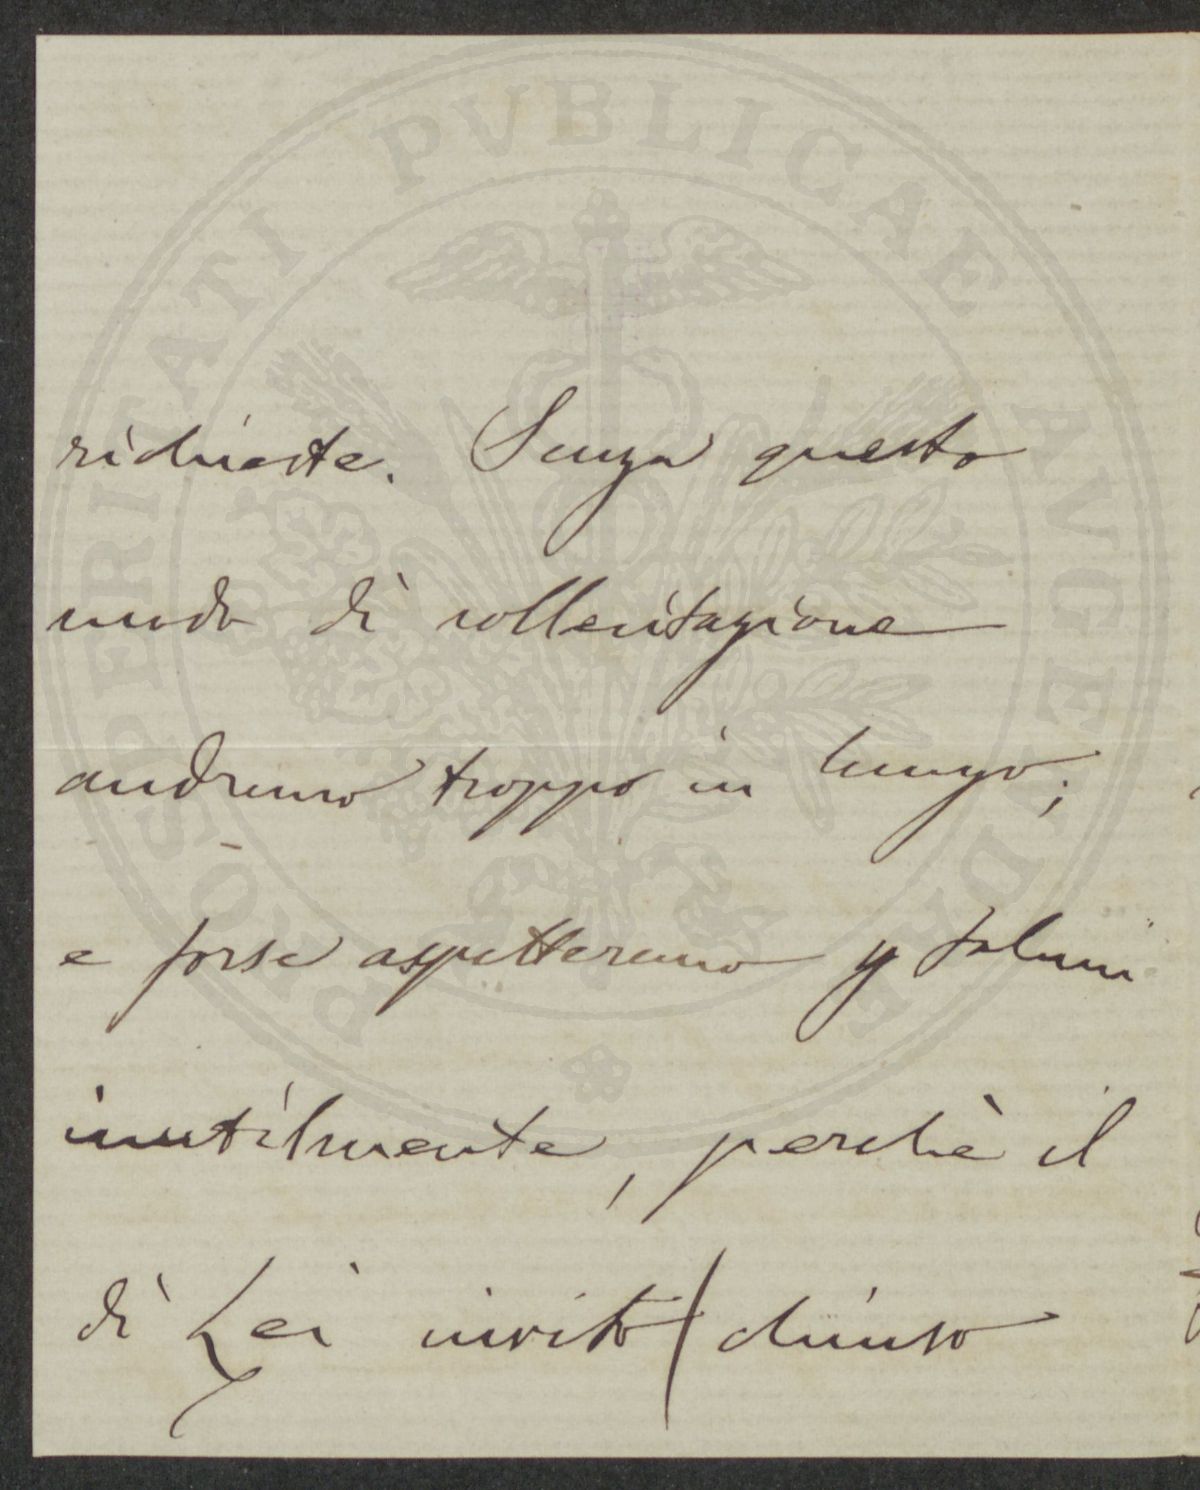 PROSPERITATI PVBLICAE AVGENDAE
richieste. Senza questo
modo di sollecitazione
andremo troppo in lungo;
e forse aspetteremo p taluni
inutilmente, perchè il
di Lei invito (chiuso